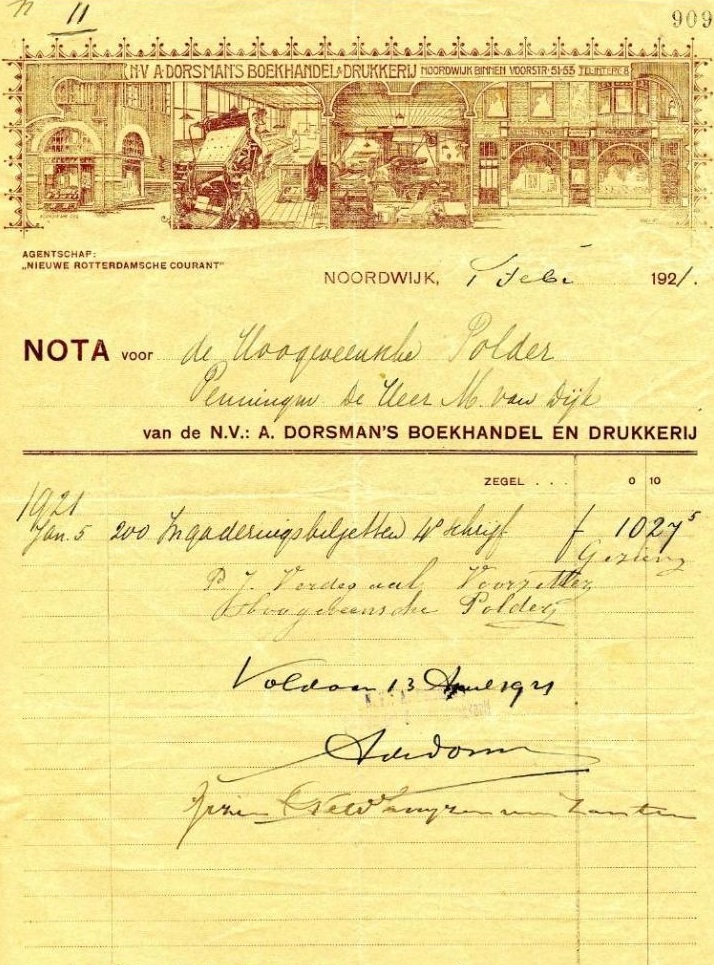 n 11
909
N.V. A. DORSMAN'S BOEKHANDEL & DRUKKERIJ NOORDWIJK BINNEN VOORSTR. 51-53 TEL. INTERC. 8
AGENTSCHAP:
„NIEUWE ROTTERDAMSCHE COURANT"
NOORDWIJK, 1 Feb. 1921.
NOTA voor de Hoogeveensche Polder
Penningm. de Heer M. van Dijk
van de N.V.: A. DORSMAN'S BOEKHANDEL EN DRUKKERIJ
ZEGEL . . . 0 10
1921
Jan. 5 200 Ingaderingsbiljetten 4° schrijf f 10 27 5
Gezien
P. J. Verdegaal, Voorzitter
Hoogeveensche Polder
Voldaan 13 April 1921
Gezien